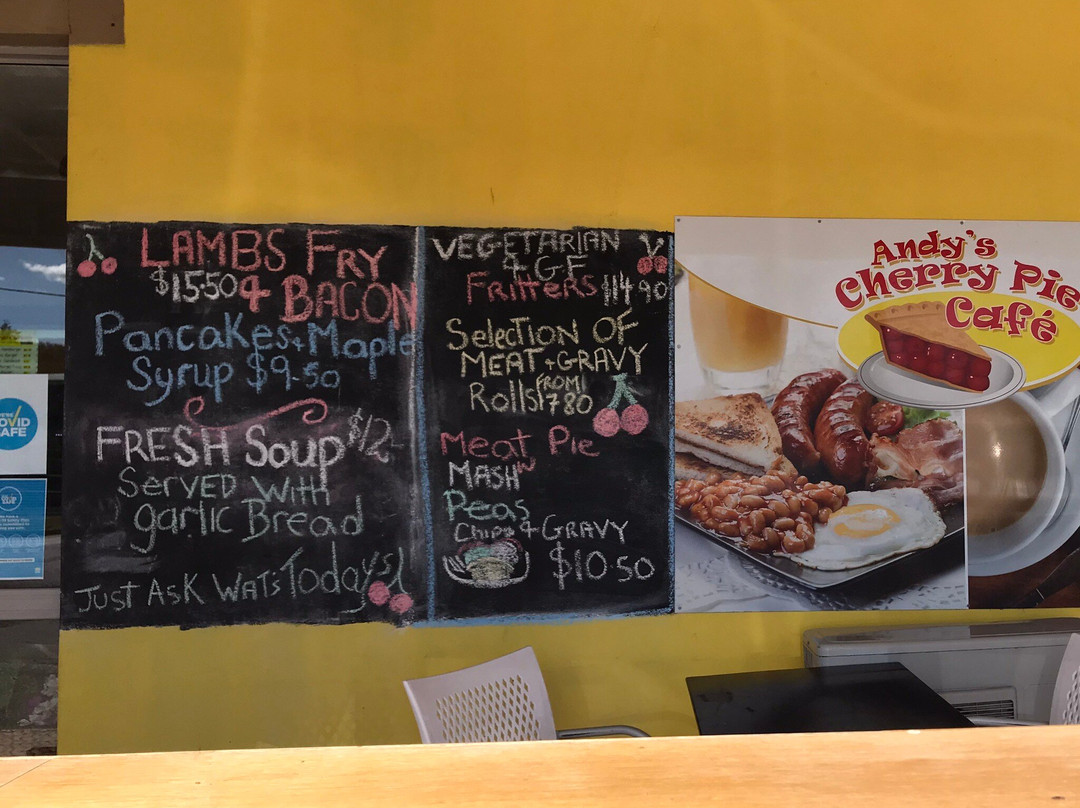 LAMBS FRY
$15.50 & BACON
Pancakes + Maple
Syrup $9.50
FRESH Soup $12-
SERVED WITH
garlic Bread
JUST ASK WATS Todays!
VEGETARIAN
+ G.F
Fritters $14.90
Selection OF
MEAT + GRAVY
Rolls FROM
$7.80
Meat Pie
MASH
Peas
Chips & GRAVY
$10.50
Andy's
Cherry Pie
Café
OVID
AFE